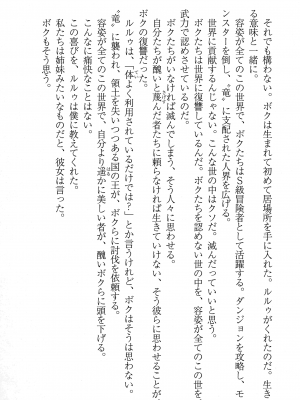 それでも構わない。ボクは生まれて初めて居場所を手に入れた。ルルゥがくれたのだ。生き
る意味と一緒に。
容姿が全てのこの世界で、ボクたちはＳ級冒険者として活躍する。ダンジョンを攻略し、モ
ンスターを倒し、『竜』に支配された人界を広げる。
世界に貢献するんじゃない。こんな世の中はクソだ。滅んだっていいと思う。
ボクたちは世界に復讐しているんだ。ボクたちを認めない世の中を、容姿が全てのこの世を、
武力で認めさせているのだ。
ボクたちがいなければ滅んでしまう、そう人々に思わせる。
自分たちが醜いと蔑んだ者たちに頼らなければ生きていけない、そう彼らに思わせることが、
ボクの復讐だった。
ルルゥは、「体よく利用されているだけでは？」とか言うけれど、ボクはそうは思わない。
『竜』に襲われ、領土を失いつつある国の王が、ボクらに討伐を依頼する。
容姿が全てのこの世界で、自分より遥かに美しい者が、醜いボクらに頭を下げる。
こんなに痛快なことはない。
この喜びを、ルルゥは僕に教えてくれた。
私たちは姉妹みたいなものだと、彼女は言った。
ボクもそう思う。